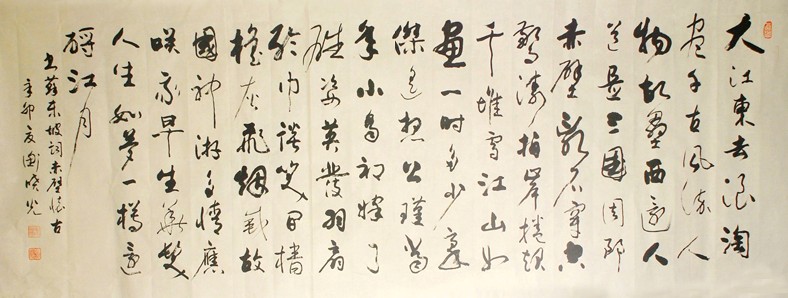 大江東去浪淘
盡千古風流人
物故壘西邊人
道是三國周郎
赤壁亂石穿空
驚濤拍岸捲起
千堆雪江山如
畫一時多少豪
傑遙想公瑾當
年小喬初嫁了
雄姿英發羽扇
綸巾談笑間檣
櫓灰飛烟滅故
國神游多情應
咲我早生華髮
人生如夢一樽還
酹江月
書蘇東坡詞赤壁懷古
辛卯夏曉光